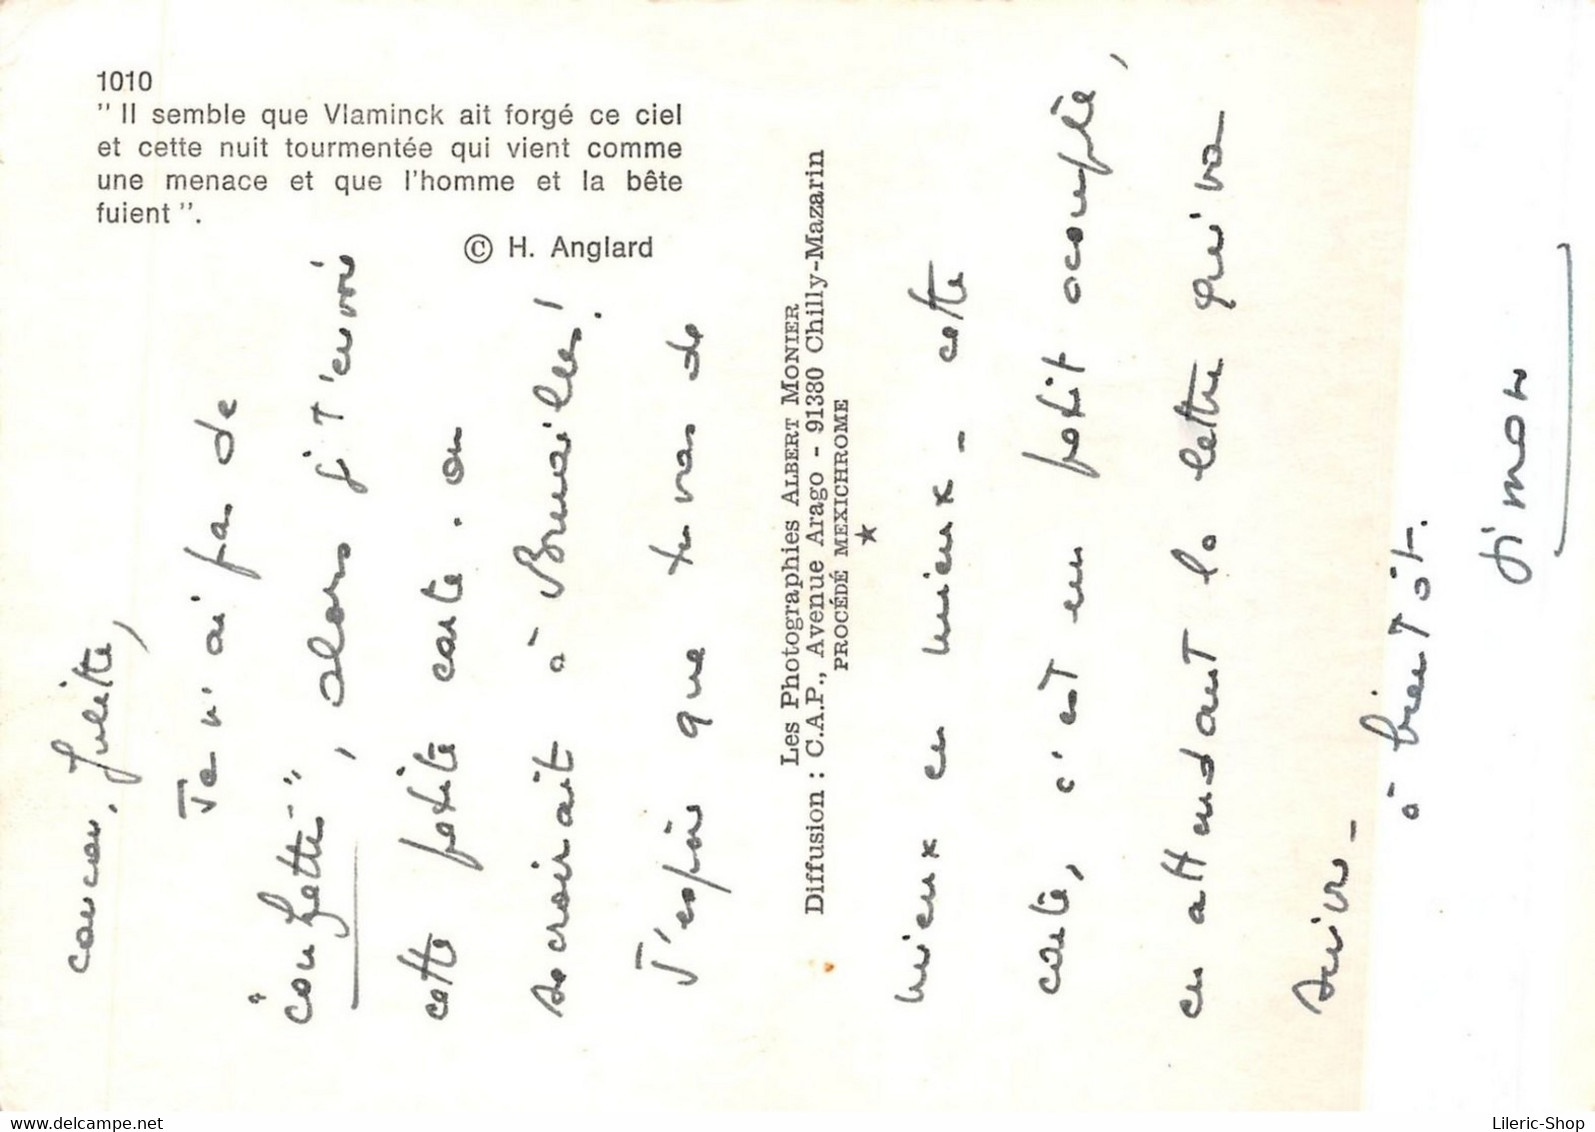 1010
" Il semble que Vlaminck ait forgé ce ciel
et cette nuit tourmentée qui vient comme
une menace et que l'homme et la bête
fuient ".
© H. Anglard
coucou, Juliette,
Je n'ai pas de
", alors j't'envoie
cette petite carte. on
se croirait à Bruxelles!
J'espère que tu vas de
Les Photographies ALBERT MONIER
Diffusion : C.A.P., Avenue Arago - 91380 Chilly-Mazarin
PROCÉDÉ MEXICHROME
mieux en mieux - cette
carte, c'est un petit acompte,
en attendant la lettre qui va
suivre -
à bientôt.
Simon
www.delcampe.net
Lileric-Shop